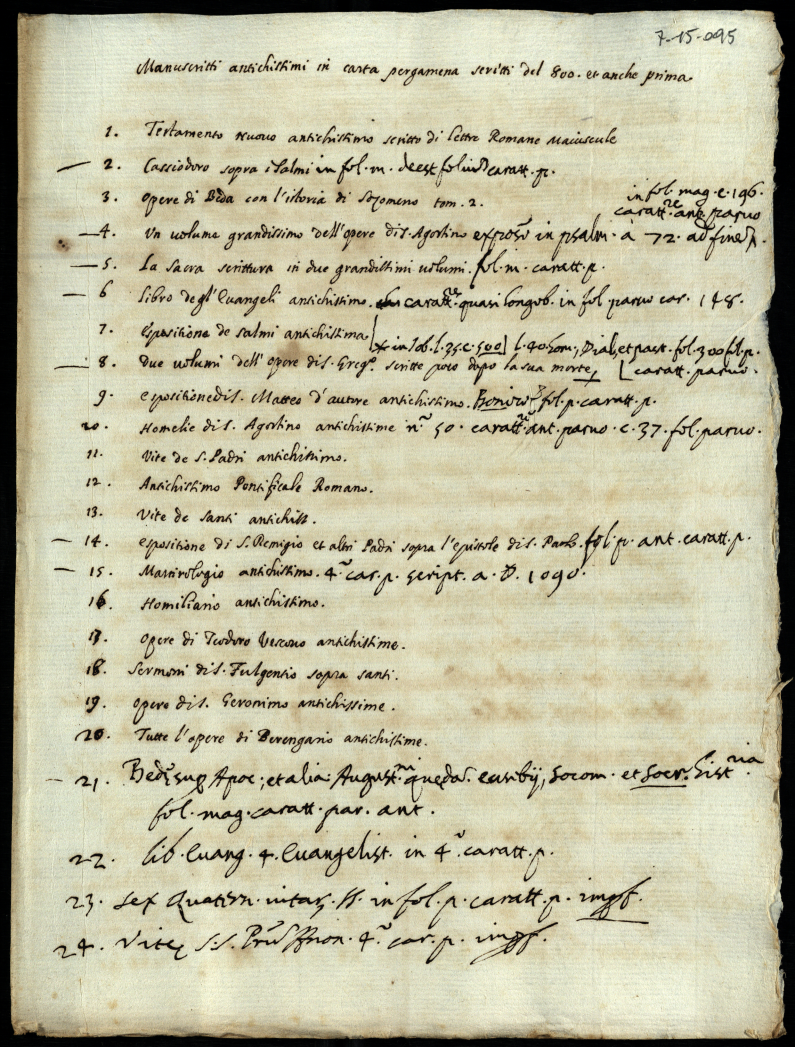 7-15-095
Manuscritti antichissimi in carta pergamena scritti del 800. et anche prima
1. Testamento nuovo antichissimo scritto di lettre Romane Maiuscule
2. Cassiodoro sopra i Salmi in fol. m. deest folium caratt. p.
3. Opere di Beda con l'istoria di Sozomeno tom. 2. in fol. mag. c. 196.
caratt.re ant. paruo
4. Un volume grandissimo dell'opere di S. Agostino in psalm. a 72. ad fine p.
5. La Sacra scrittura in due grandissimi uolumi. fol. m. caratt. p.
6 Libro degl'Euangeli antichissimo. caratt.re quasi longob. in fol paruo car. 148.
7. Espositione de salmi antichissima.
in Iob. l. 35 c. 500 l. 40 hom; Dial, et past. fol. 300 fol. p.
8. Due volumi dell'opere di S. Greg.o scritte poco dopo la sua morte, caratt. paruo.
9. espositione di S. Matteo d'autore antichissimo. fol. p. caratt. p.
10. Homelie di S. Agostino antichissime n.o 50. caratt.re ant. paruo. c. 37. fol. paruo.
11. Vite de S. Padri antichissimo.
12. Antichissimo Pontificale Romano.
13. Vite de Santi antichiss.
14. espositione di S. Remigio et altri Padri sopra l'epistole di S. Paolo. fol. p. ant. caratt. p.
15. Martirologio antichissimo. 4.o car. p. script. a. D. 1090.
16. Homiliario antichissimo.
17. Opere di Teodoro Vescouo antichissime.
18. Sermoni di S. Fulgentio sopra santi.
19. Opere di S. Geronimo antichissime.
20. Tutte l'opere di Berengario antichissime.
21. Bedę sup Apoc; et alia August.ni quędam. eusebij, Socom. et Socr. Historia.
fol. mag. caratt. par. ant.
22. Lib. Euang. 4. Euangelist. in 4.o caratt. p.
23. Sex Quatern. uitar. SS. in fol. p. caratt. p. impf.
24. Vitę S.S. 4.o car. p. impf.